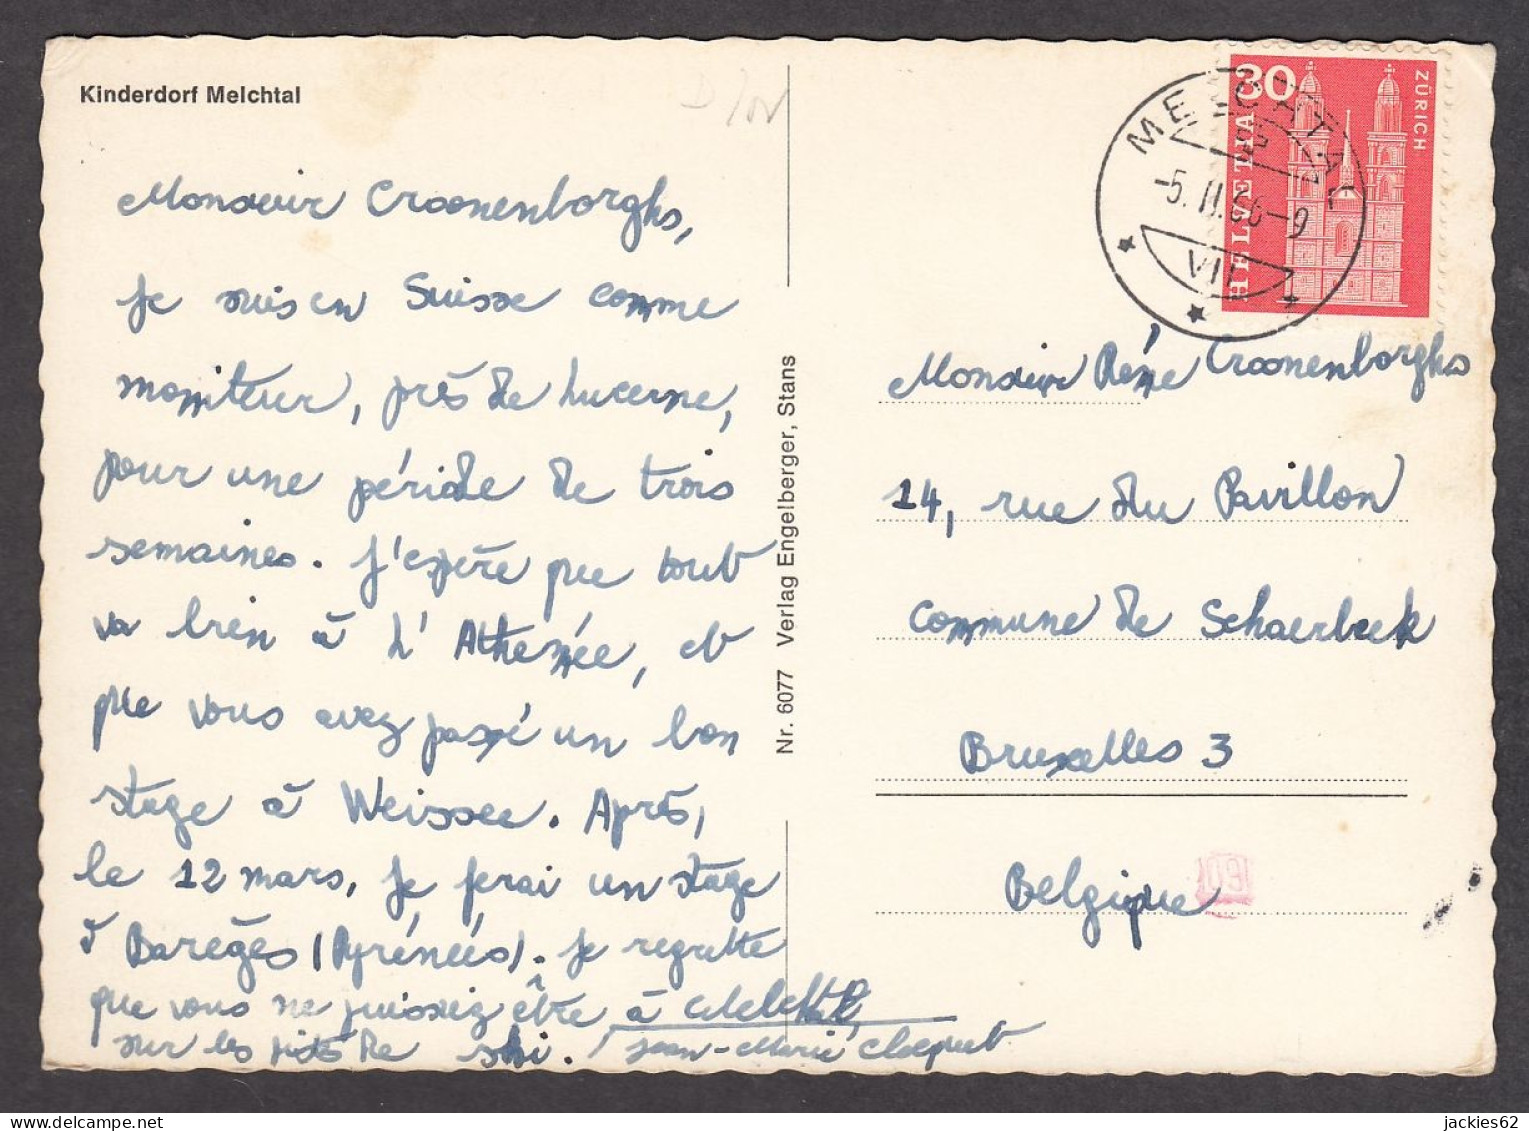 Kinderdorf Melchtal
Monsieur Croonenborghs,
Je suis en Suisse comme
moniteur, près de Lucerne,
pour une périole de trois
semaines. J'espère que tout
va bien à l'Athénée, et
que vous avez passé un bon
stage à Weissee. Après,
le 12 mars, je ferai un stage
à Barèges (Pyrénées). Je regrette
que vous ne puissiez être à Melchtal,
sur les pistes de ski. Jean-Marie Cloequet
Nr. 6077 Verlag Engelberger, Stans
30
ZÜRICH
HELVETIA
MELCHTAL
-5.II.66-9
VII
Monsieur René Croonenborghs
14, rue du Pavillon
Commune de Schaerbeek
Bruxelles 3
Belgique
jackies62